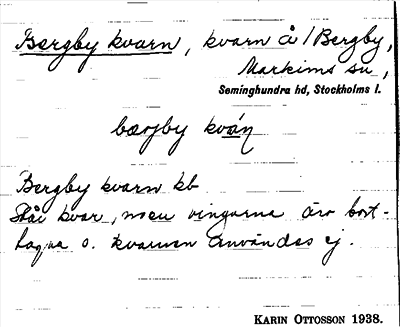 Bergby kvarn, kvarn å / Bergby,
Markims sn,
Seminghundra hd, Stockholms l.
bærjby kván
Bergby kvarn kb
Står kvar, men vingarna äro bort-
tagna o. kvarnen användes ej.
KARIN OTTOSSON 1938.